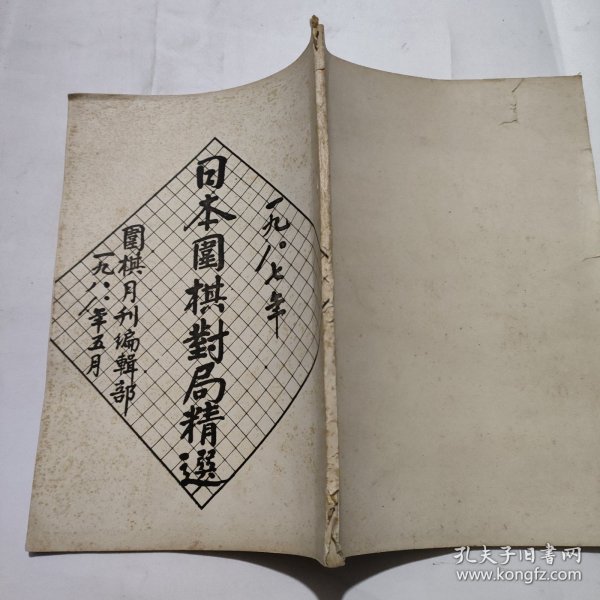 一九八七年
日本圍棋對局精選
圍棋月刊编輯部
一九八八年五月
孔夫子旧书网
www.kongfz.com